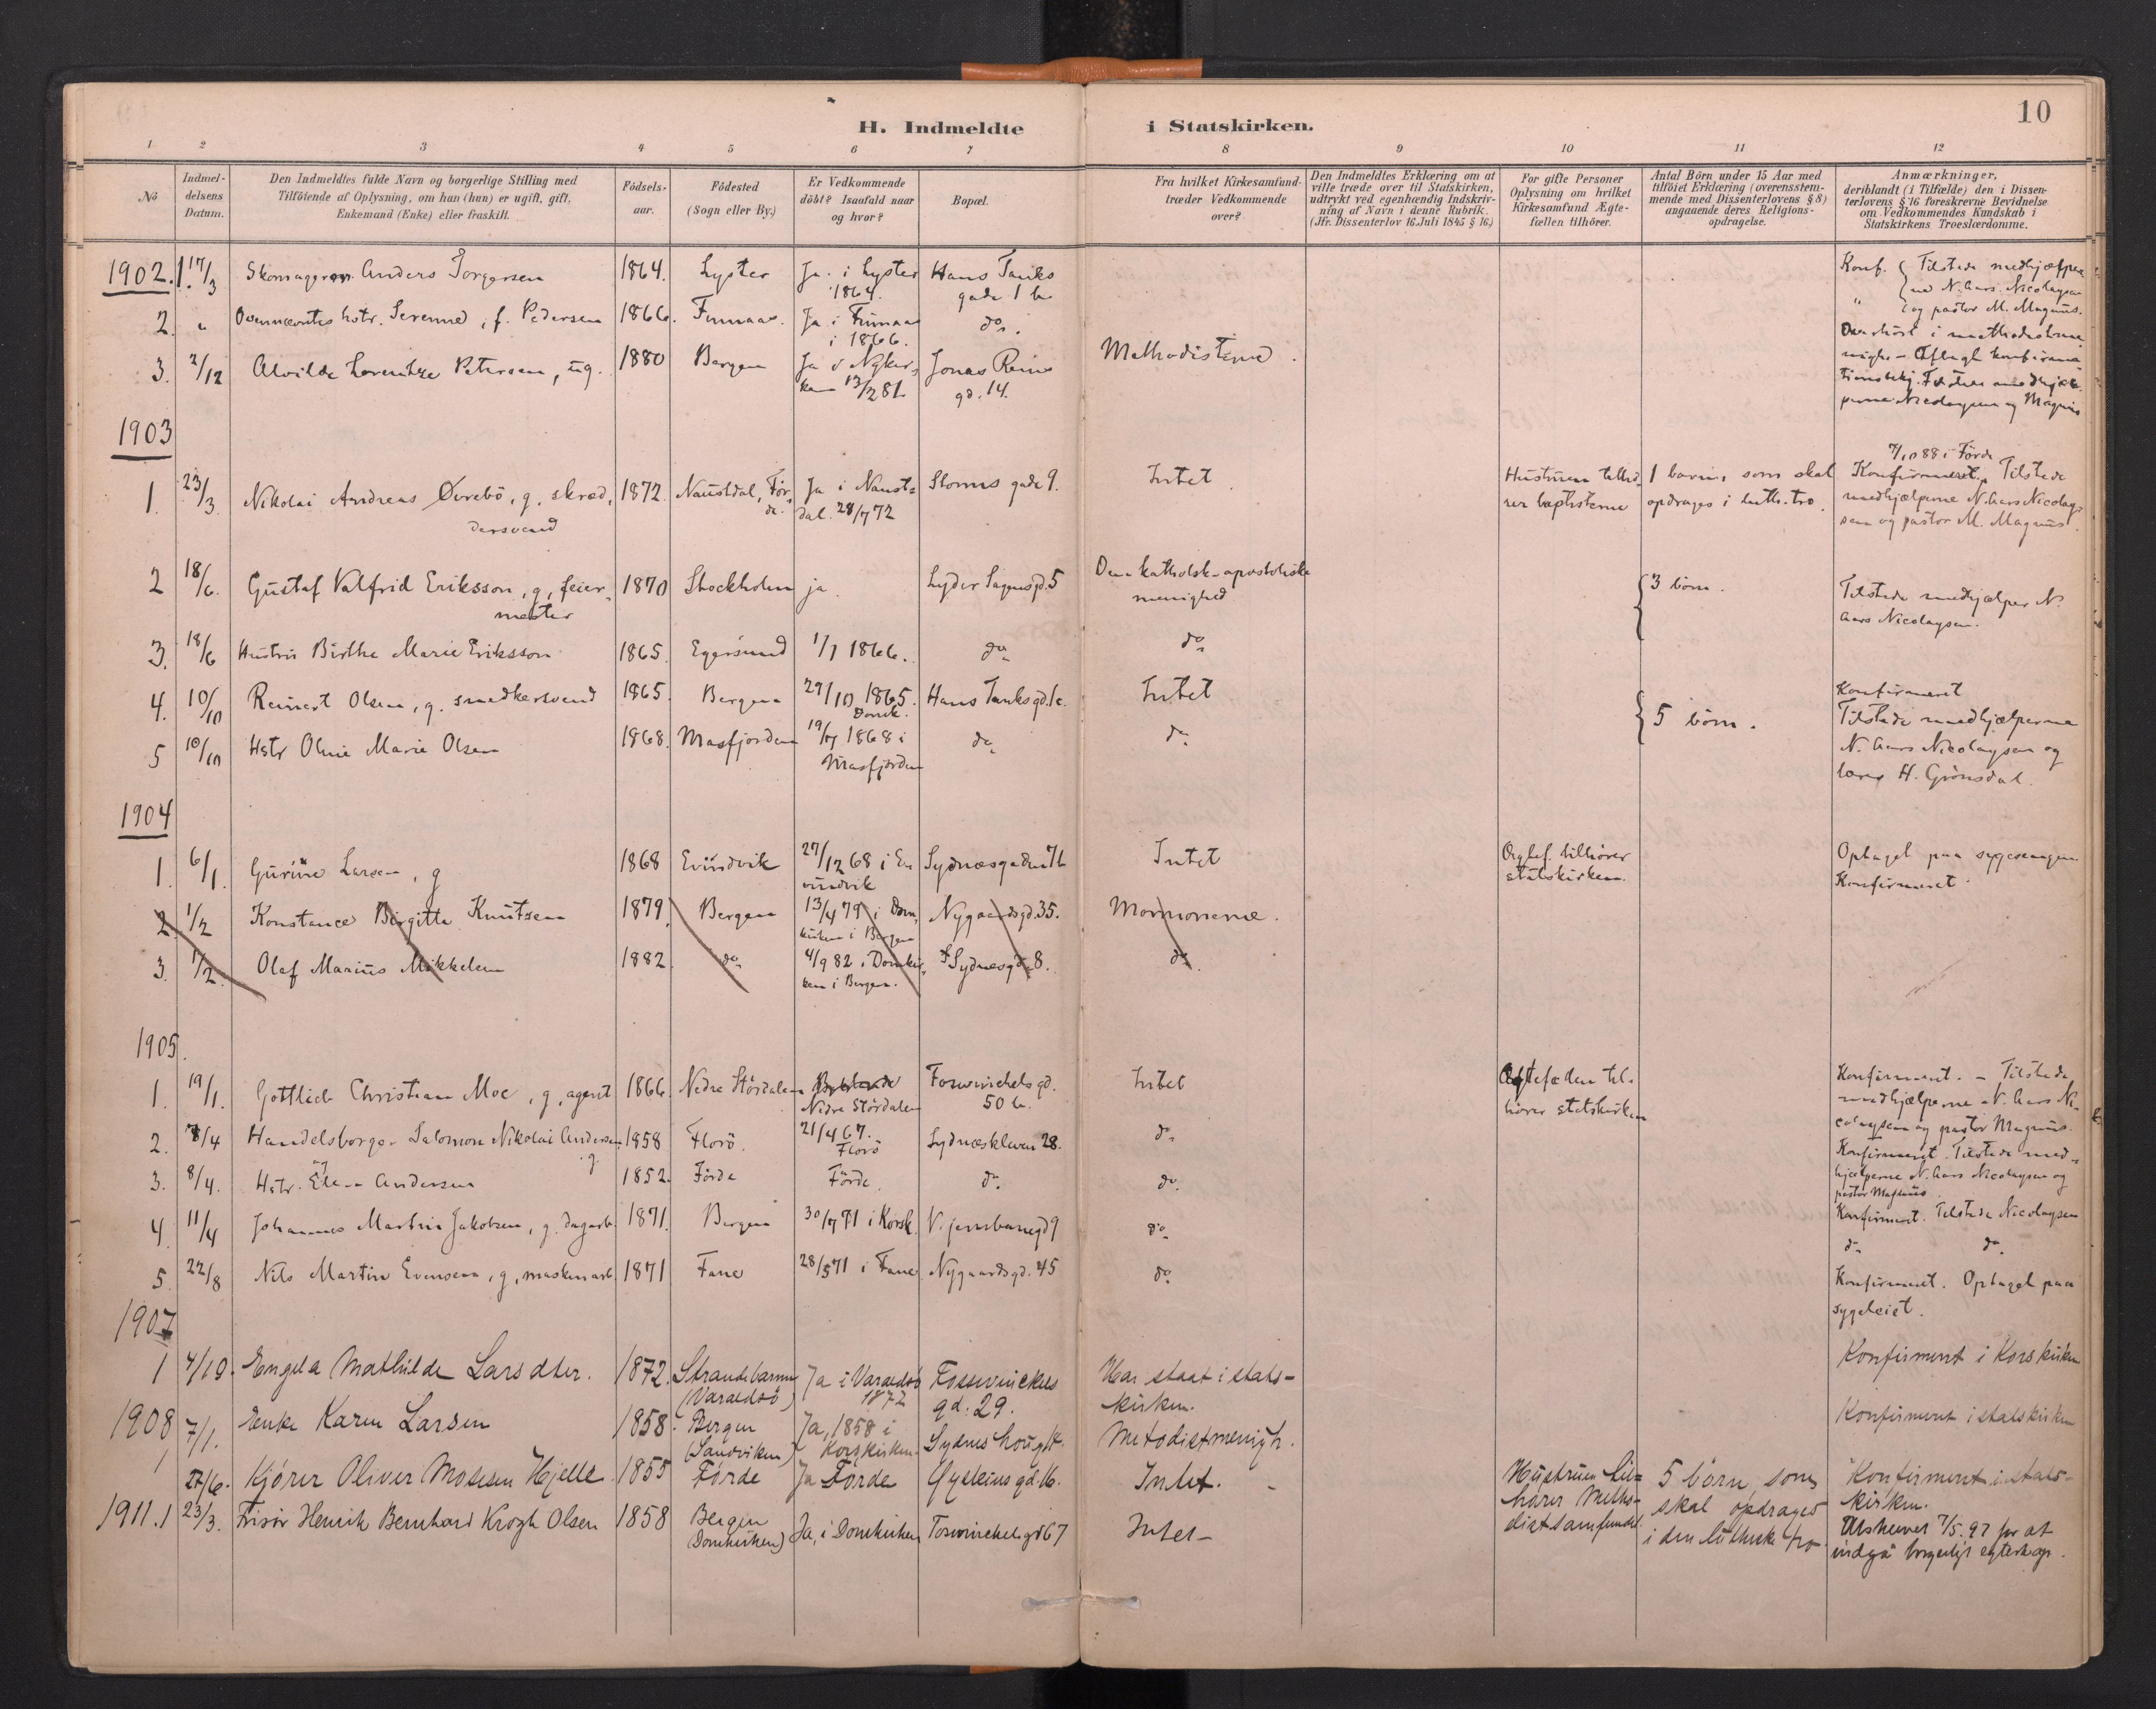 10
H. Indmeldte i Statskirken.
1 2 3 4 5 6 7 8 9 10 11 12
No
Indmel-
delsens
Datum.
Den Indmeldtes fulde Navn og borgerlige Stilling med
Tilföiende af Oplysning, om han (hun) er ugift, gift,
Enkemand (Enke) eller fraskilt.
Födsels-
aar.
Födested
(Sogn eller By.)
Er Vedkommende
döbt? Isaafald naar
og hvor?
Bopæl.
Fra hvilket Kirkesamfund
træder Vedkommende
over?
Den Indmeldtes Erklæring om at
ville træde over til Statskirken,
udtrykt ved egenhændig Indskriv-
ning af Navn i denne Rubrik.
(Jfr. Dissenterlov 16 Juli 1845 § 16.)
For gifte Personer
Oplysning om hvilket
Kirkesamfund Ægte-
fællen tilhörer.
Antal Börn under 15 Aar med
tilföiet Erklæring (overensstem-
mende med Dissenterlovens § 8)
angaaende deres Religions-
opdragelse.
Anmærkninger,
deriblandt (i Tilfælde) den i Dissen-
terlovens § 16 foreskrevne Bevidnelse
om Vedkommendes Kundskab i
Statskirkens Troeslærdomme.
1902. 1. 17/3 Anders Torgersen 1864. Lyster Ja. i Lyster 1864. Hans Tanks gade 1 b.
Konf. Tilstede medhjælper
N. Aars Nicolaysen
og pastor M. Magnus.
2. " hstr. Serenne, f. Pedersen 1866. Finnaas. Ja i Finnaas i 1866. do.
3. 2/12 Alvilde Lorentze Petersen, ug. 1880 Bergen Ja i Nykir-
ken 13/2 81. Jonas Reins gd. 14. Methodisterne.
1903
1. 23/3 Nikolai Andreas Övrebö, g, skræd-
dersvend 1872. Naustdal, För-
de. Ja i Naust-
dal. 28/7 72 Storms gade 9. Intet Hustruen tilhö-
rer baptisterne 1 barn, som skal
opdrages i luth. tro.
7/10 88 i Förde
Konfirmeret. Tilstede
medhjælperne N. Aars Nicolay-
sen og pastor M. Magnus.
2 18/6. Gustaf Valfrid Eriksson, g, feier-
mester 1870 Stockholm ja Lyder Sagensgd. 5 Den katholsk-apostoliske
menighed 3 börn.
Tilstede medhjælper N.
Aars Nicolaysen.
3. 18/6 Hustru Birthe Marie Eriksson 1865. Egersund 1/1 1866. do do
4. 10/10 Reinert Olsen, g. smedkersvend 1865. Bergen 29/10 1865.
Domk. Hans Tanksgd. 1c. Intet 5 börn.
Konfirmeret
Tilstede medhjælperne
N. Aars Nicolaysen og
lærer H. Grönsdal.
5 10/10 Hstr Oline Marie Olsen 1868. Masfjorden 19/7 1868 i
Masfjorden do do
1904
1. 6/1. Gurine Larsen, g 1868 Evindvik 27/12 68 i Ev
indvik Sydnæsgaden 7b Intet Ægtef. tilhører
statskirken. Optaget paa sygesengen
Konfirmeret.
2. 1/2 Konstance Birgitte Knutsen 1879. Bergen 13/4 79 i Dom-
kirken i Bergen Nygaardsgd. 35. Mormonerne.
3. 1/2. Olaf Marius Mikkelsen 1882. do 4/9 82 i Domkir-
ken i Bergen. Sydnesgd. 8. do.
1905.
1. 19/1. Gottlieb Christian Moe, g, agent 1866. Nedre Stördalen Nedre Stördalen Fosswinckels gd.
50 b. Intet Ægtefællen til-
hörer statskirken
Konfirmeret. - Tilstede
medhjælperne N. Aars Ni-
colaysen og pastor Magnus.
2. 8/4 Handelsborger Salomon Nikolai Andersen g. 1858 Florö. 21/4 67.
Florö Sydnæskleven 28. do.
Konfirmeret. Tilstede med-
hjælperne N. Aars Nicolaysen og
pastor Magnus.
3. 8/4. Hstr. Andersen 1852. Förde Förde. do. do.
4. 11/4 Johannes Martin Jakobsen, g. dagarb 1871. Bergen 30/7 71 i Korsk. V. jernbanegd 9 do.
Konfirmeret. Tilstede Nicolaysen
do do.
5. 22/8 Nils Martin Evensen, g, maskinarb. 1871 Fane 28/5 71 i Fane Nygaardsgd. 45 do
Konfirmeret. Optaget paa
sygeleiet.
1907
1 4/10. Engela Mathilde Larsdtr. 1872. Strandebarm
(Varaldsö) Ja i Varaldsö
1872 Fosswinckels
gd. 29. Har staat i stats-
kirken. Konfirmert i Korskirken
1908 1 7/1. Enke Karen Larsen 1858. Bergen
(Sandviken) Ja, 1858 i
Korskirken. Sydnes Metodistmenigh.
Konfirmert i statskirken
27/6. Kjörer Oliver Mosesen Hjelle 1855 Förde Ja Förde Øysteins gd. 16. Intet. Hustruen til-
hörer Metho-
distsamfundet. 5 börn, som
skal opdrages
i den lutherske tro. Konfirmert i stats-
kirken.
1911. 1 23/3. Frisör Henrik Bernhard Krogh Olsen 1858 Bergen
(Domkirken) Ja, i Domkirken Foswinckelsgd 67 Intet-
Utskrevet 7/5. 97 for at
indgå borgerligt egteskap.